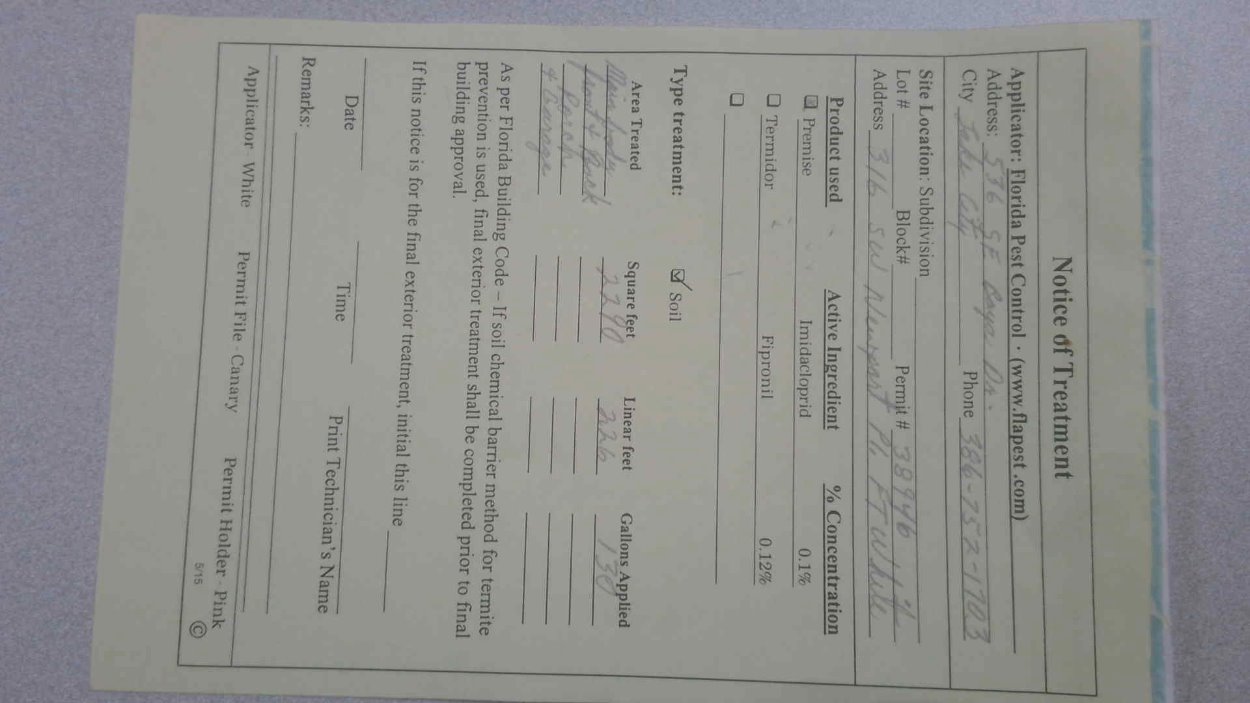 Notice of Treatment
Applicator: Florida Pest Control · (www.flapest.com)
Address: 536 SE Baya Dr.
City Lake City Phone 386-752-1703
Site Location: Subdivision
Lot # Block# Permit # 38946
Address 316 SW Newport Pl. FT White
Product used Active Ingredient % Concentration
Premise Imidacloprid 0.1%
Termidor Fipronil 0.12%
Type treatment: Soil
Area Treated Square feet Linear feet Gallons Applied
Main body 2290 226 130
Front & Back
Porch
& Garage
As per Florida Building Code – If soil chemical barrier method for termite
prevention is used, final exterior treatment shall be completed prior to final
building approval.
If this notice is for the final exterior treatment, initial this line
Date Time Print Technician's Name
Remarks:
Applicator - White Permit File - Canary Permit Holder - Pink
5/15 ©